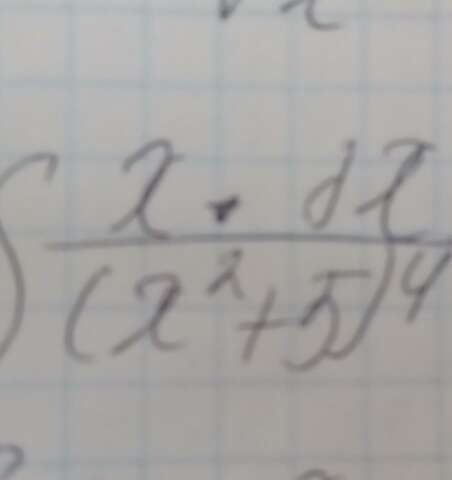 ∫ x · dx
(x²+5)⁴